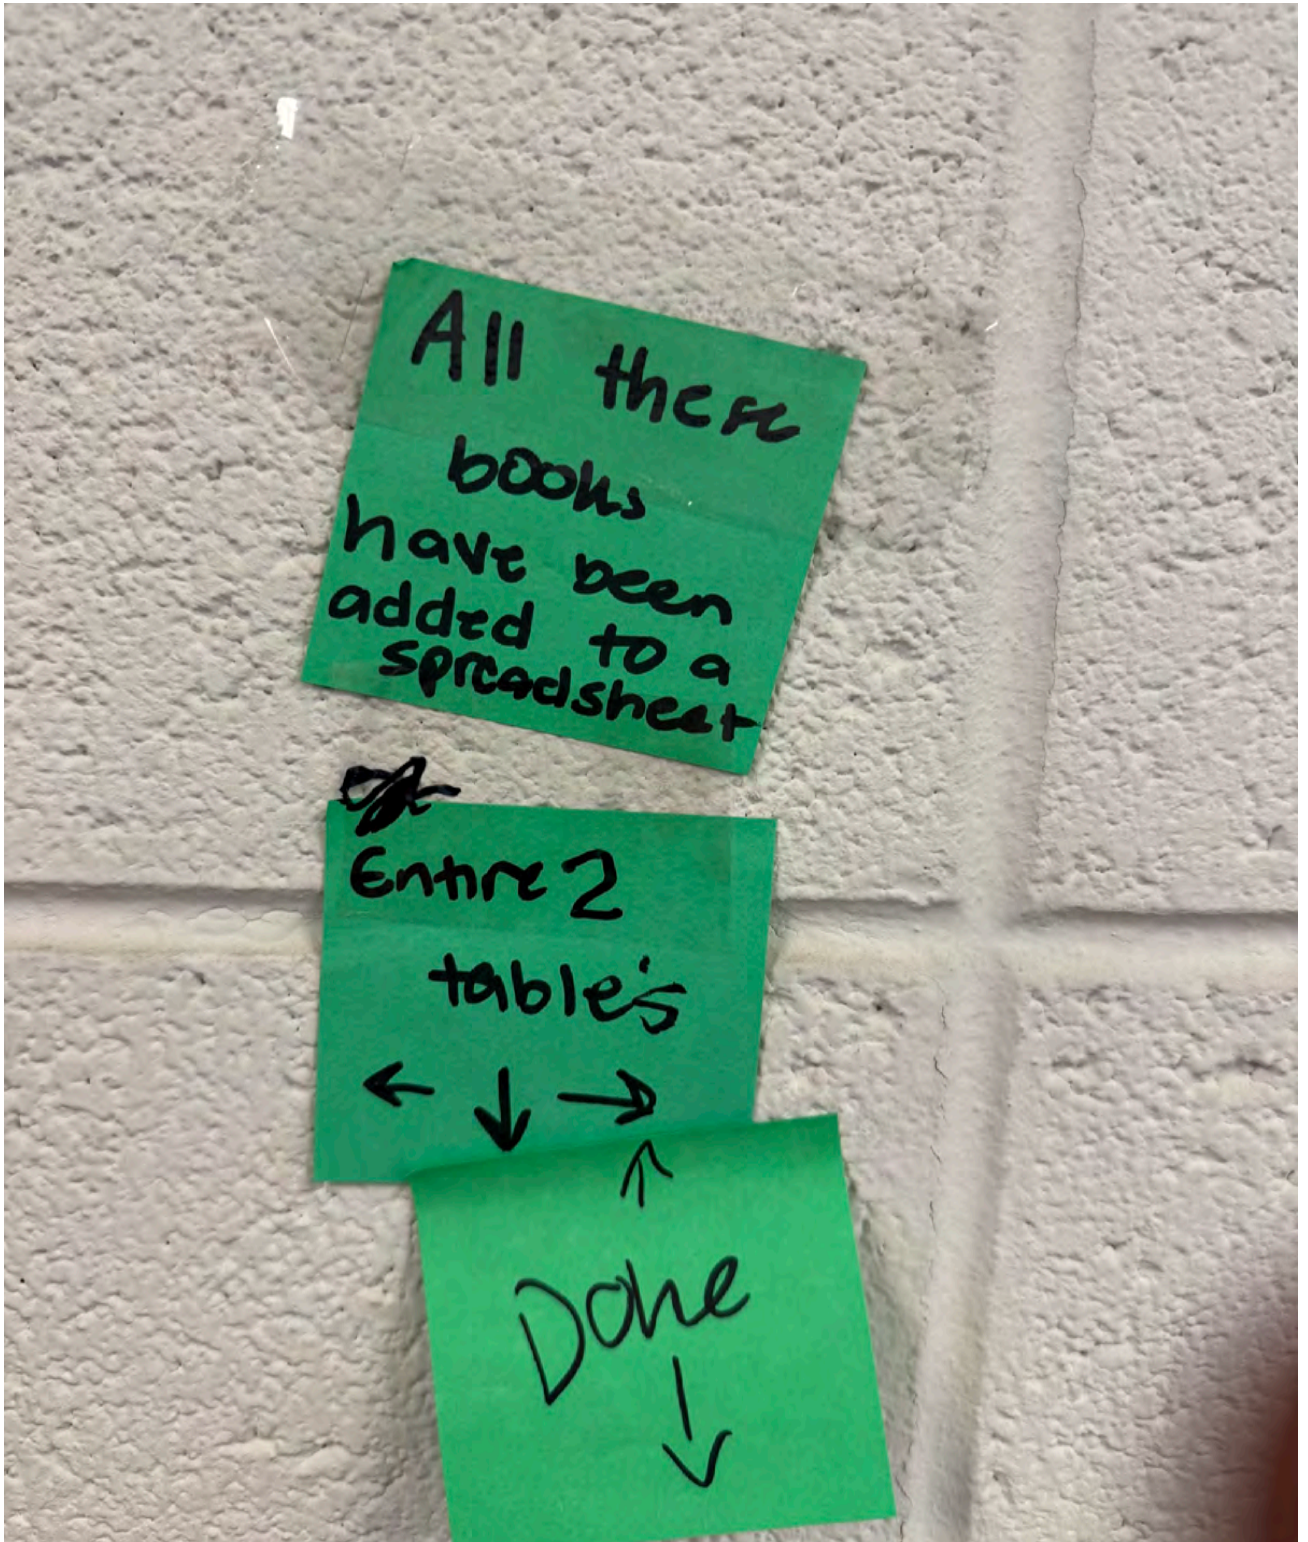 All these
books
have been
added to a
spreadsheet
Entire 2
table's
← ↓ →
↑
Done
↓